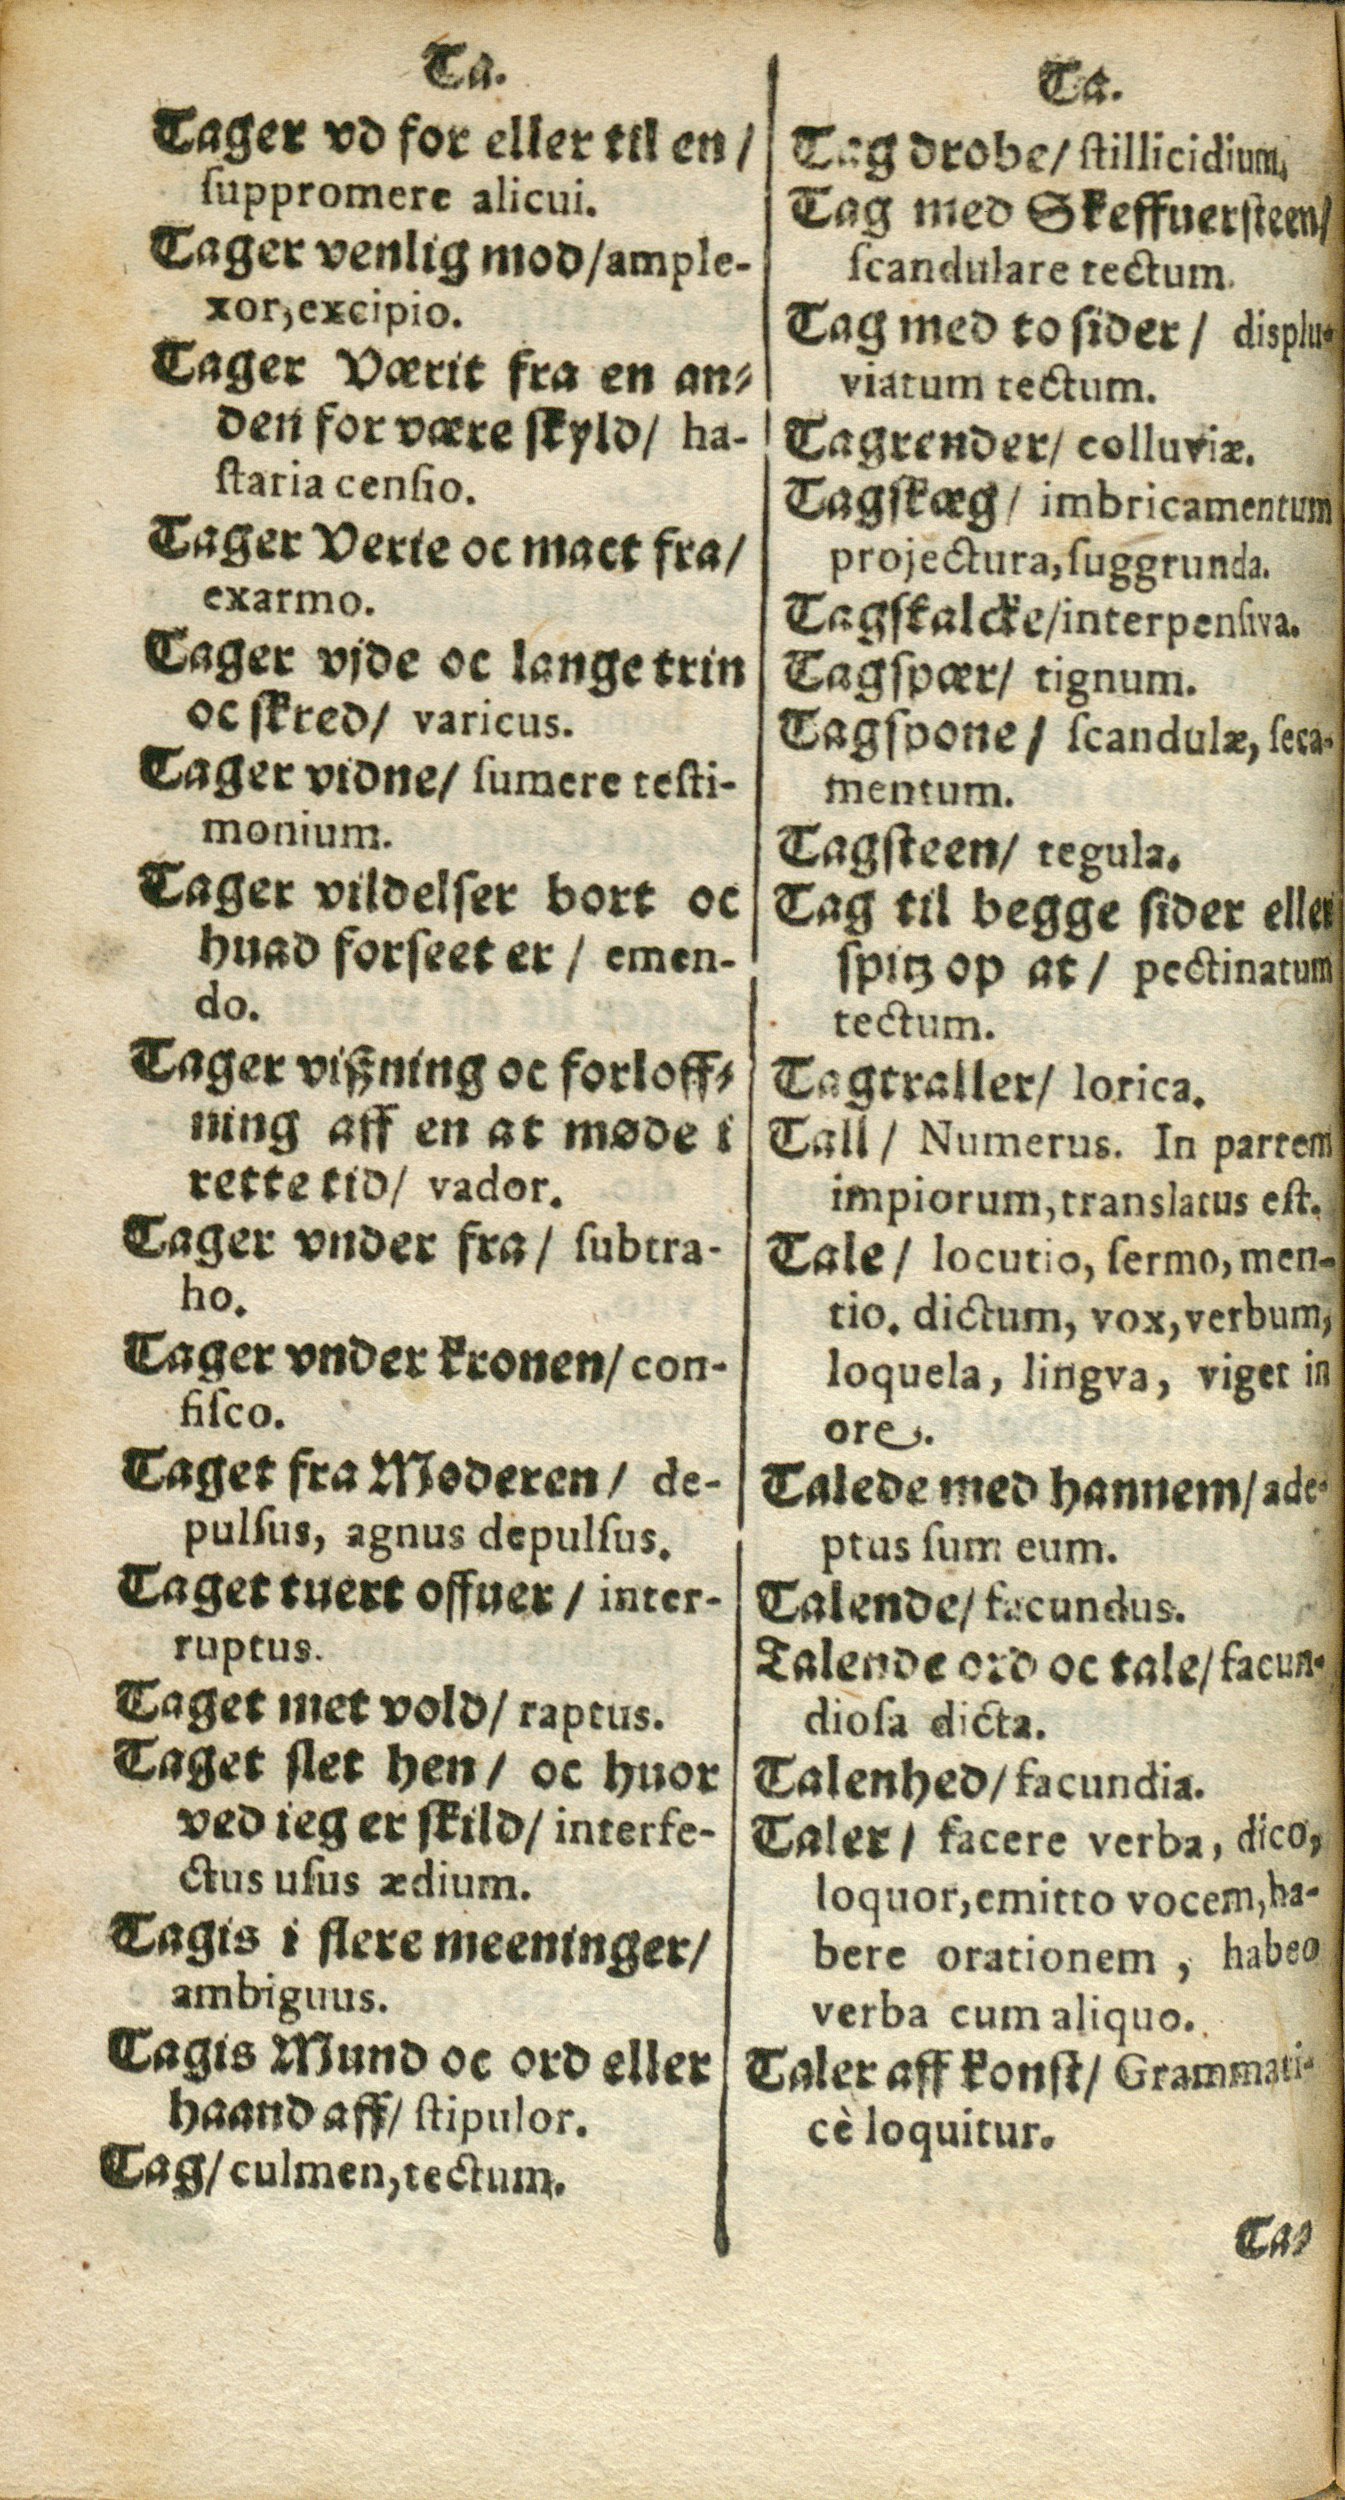 Ta.
Tager vd for eller til en/
ſuppromere alicui.
Tager venlig mod/ample-
xor, excipio.
Tager Værit fra en an-
den for være ſkyld/ ha-
ſtaria cenſio.
Tager Verie oc mact fra/
exarmo.
Tager vjde oc lange trin
oc ſkred/ varicus.
Tager vidne/ ſumere teſti-
monium.
Tager vildelſer bort oc
huad forſeet er / emen-
do.
Tager viſzning oc forloff-
ning aff en at møde i
rette tid/ vador.
Tager vnder fra/ ſubtra-
ho.
Tager vnder kronen/ con-
fiſco.
Taget fra Moderen/ de-
pulſus, agnus depulſus.
Taget tuert offuer / inter-
ruptus.
Taget met vold/ raptus.
Taget ſlet hen/ oc huor
ved ieg er ſkild/ interfe-
ctus uſus ædium.
Tagis i flere meeninger/
ambiguus.
Tagis Mund oc ord eller
haand aff/ ſtipulor.
Tag/ culmen, tectum.
Ta.
Tag drobe/ ſtillicidium,
Tag med Skeffuerſteen/
ſcandulare tectum.
Tag med to ſider/ displu-
viatum tectum.
Tagrender/ colluviæ.
Tagſkæg/ imbricamentum
projectura, ſuggrunda.
Tagſkalcke/interpenſiva.
Tagſpær/ tignum.
Tagſpone/ ſcandulæ, ſeca-
mentum.
Tagſteen/ tegula.
Tag til begge ſider eller
ſpitz op at / pectinatum
tectum.
Tagtraller/ lorica.
Tall/ Numerus. In partem
impiorum, translatus eſt.
Tale/ locutio, ſermo, men-
tio. dictum, vox, verbum,
loquela, lingva, viget in
ore.
Talede med hannem/ ade-
ptus ſum eum.
Talende/ facundus.
Talende ord oc tale/ facun-
dioſa dicta.
Talenhed/ facundia.
Taler/ facere verba, dico,
loquor, emitto vocem, ha-
bere orationem, habeo
verba cum aliquo.
Taler aff konſt/ Grammati-
cè loquitur.